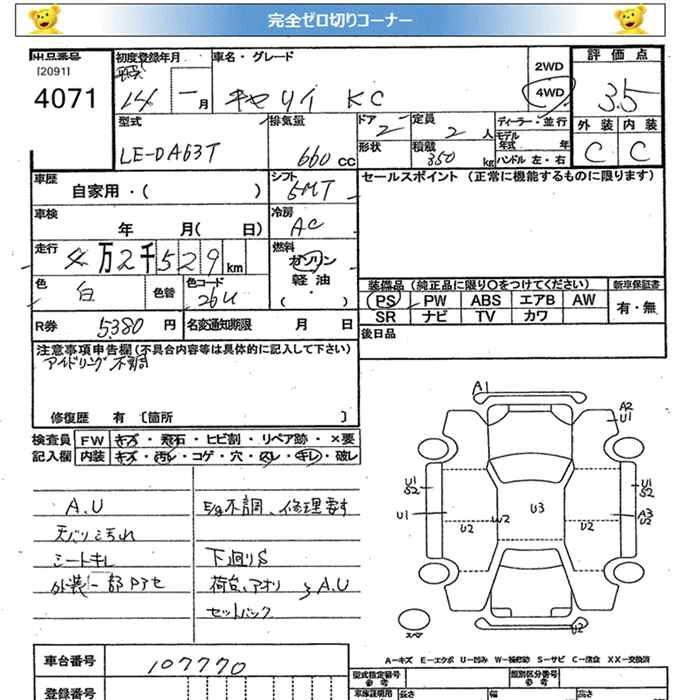 完全ゼロ切りコーナー
出品番号
[2091]
4071
初度登録年月
14年一月
車名・グレード
キャリイ KC
2WD
4WD
評価点
3.5
外装 内装
C C
型式
LE-DA63T
排気量
660 cc
ドア
2
定員
2 人
形状
積載
350 kg
ディーラー・並行
モデル年式 年
ハンドル 左・右
車歴
自家用・( )
シフト
5MT
セールスポイント (正常に機能するものに限ります)
車検
年 月( 日)
冷房
AC
走行
4万2千529km
燃料
ガソリン
軽油
( ・ )
色
白
色替
色コード
26U
装備品 (純正品に限り○をつけてください)
新車保証書
PS PW ABS エアB AW
SR ナビ TV カワ
有・無
R券
5380 円
名変通知期限 月 日
後日品
注意事項申告欄 (不具合内容等は具体的に記入して下さい)
アイドリング不調
修復歴 有 〔箇所 〕
検査員記入欄
FW キズ・飛石・ヒビ割・リペア跡・×要
内装 キズ・汚レ・コゲ・穴・スレ・キレ・破レ
A.U
天バリ汚れ
シートキレ
外装一部Pアセ
E/g不調、修理要す
下廻りS
荷台、アオリ A.U
セットバック
A1
A2
U1
U1
S2
U1
U2
W2
U3
U2
U1
S2
A3
U2
U2
スペア
A-キズ E-エクボ U-凹み W-補修跡 S-サビ C-腐食 XX-交換済
車台番号
107770
登録番号
型式指定番号
参考
類別区分番号
参考
車庫証明用
長さ
幅
高さ